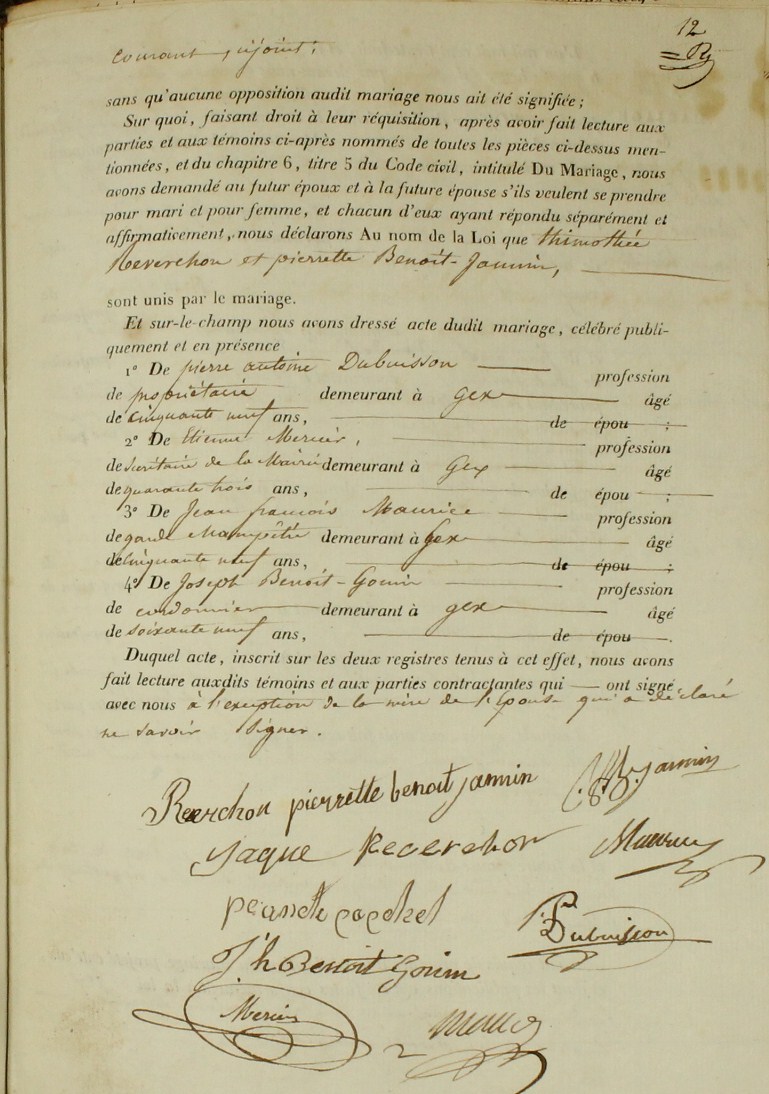 12
courant, cijoint;
sans qu'aucune opposition audit mariage nous ait été signifiée;
Sur quoi, faisant droit à leur réquisition, après avoir fait lecture aux
parties et aux témoins ci-après nommés de toutes les pièces ci-dessus men-
tionnées, et du chapitre 6, titre 5 du Code civil, intitulé Du Mariage, nous
avons demandé au futur époux et à la future épouse s'ils veulent se prendre
pour mari et pour femme, et chacun d'eux ayant répondu séparément et
affirmativement, nous déclarons Au nom de la Loi que thimothée
Reverchon et pierrette Benoit-Jannin,
sont unis par le mariage.
Et sur-le-champ nous avons dressé acte dudit mariage, célébré publi-
quement et en présence
1° De pierre antoine Dubuisson profession
de propriétaire demeurant à gex âgé
de cinquante neuf ans, de épou ;
2° De Etienne Mercier, profession
de secrétaire de la Mairie demeurant à Gex âgé
de quarante trois ans, de épou ;
3° De Jean françois Maurice profession
de garde champêtre demeurant à Gex âgé
de cinquante neuf ans, de épou ;
4° De Joseph Benoit-Gonin profession
de cordonnier demeurant à gex âgé
de soixante neuf ans, de épou .
Duquel acte, inscrit sur les deux registres tenus à cet effet, nous avons
fait lecture auxdits témoins et aux parties contractantes qui ont signé
avec nous à l'exeption de la mère de l'Epouse qui a déclaré
ne savoir signer.
Reverchon pierrette benoit jannin Jannin
jaque Reverchon Maurice
P. Dubuisson
J.h Benoit Gonin
Mercier